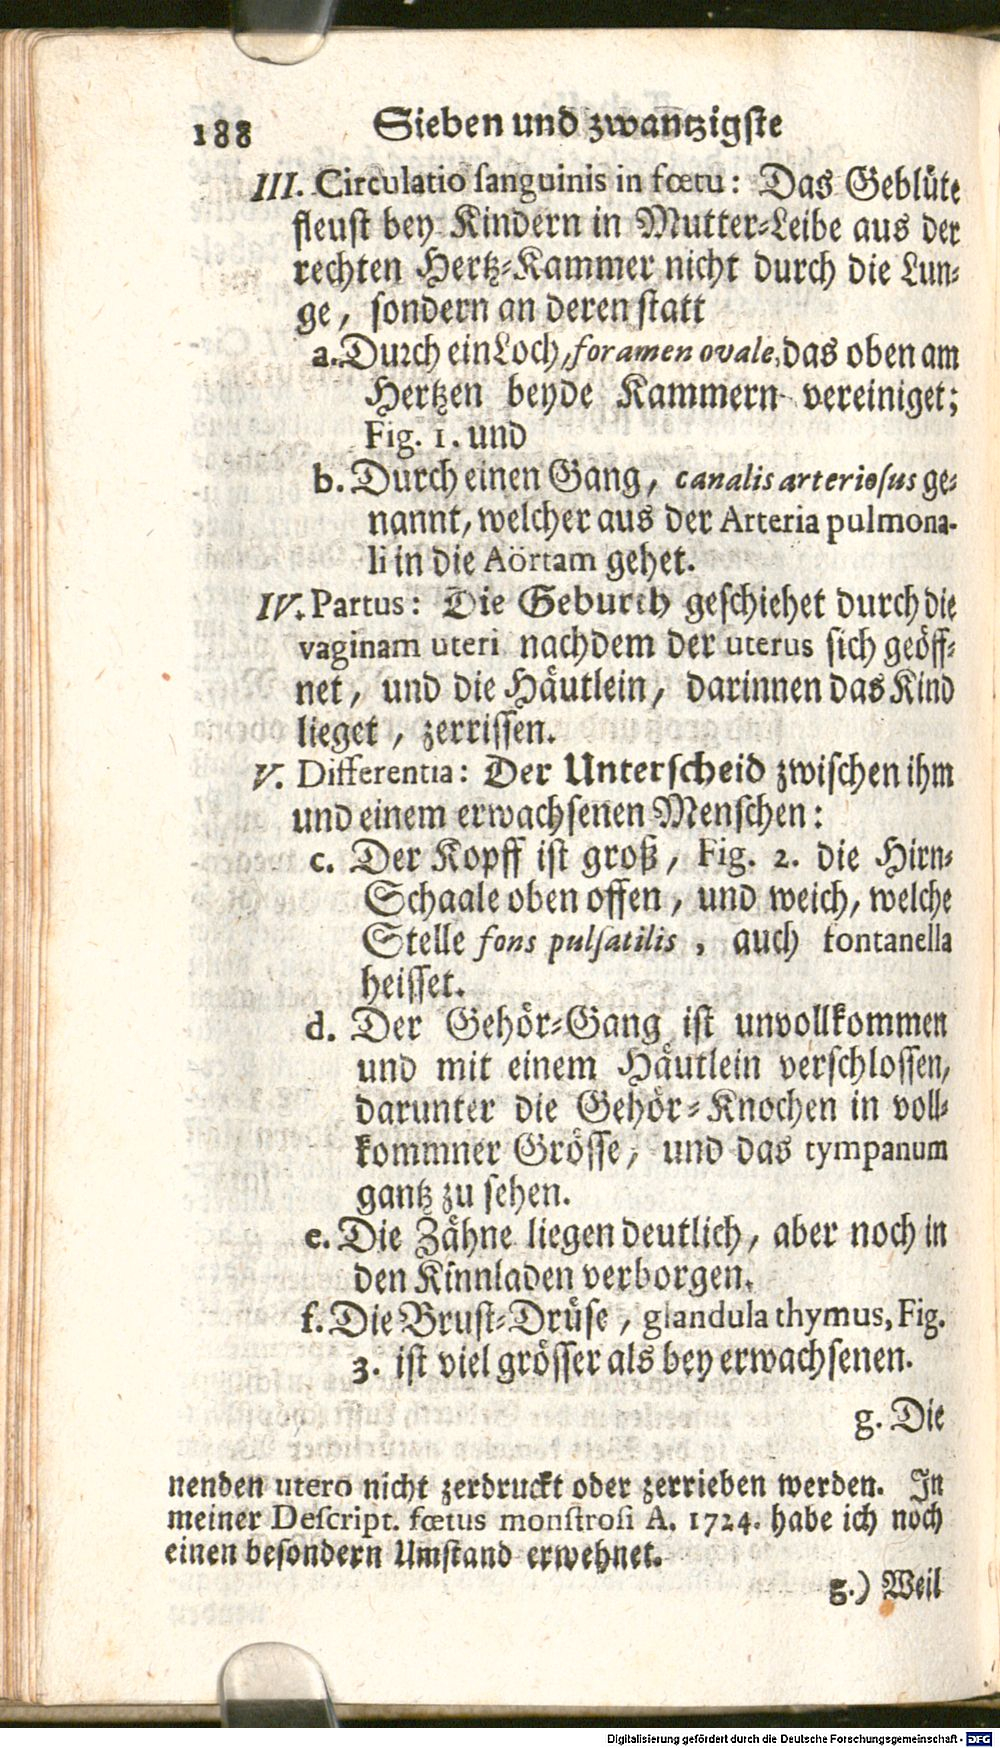 188 Sieben und zwantzigste
III. Circulatio ſanguinis in fœtu: Das Geblüte
fleuſt bey Kindern in Mutter-Leibe aus der
rechten Hertz-Kammer nicht durch die Lun-
ge, ſondern an deren ſtatt
a. Durch ein Loch, foramen ovale, das oben am
Hertzen beyde Kammern vereiniget;
Fig. 1. und
b. Durch einen Gang, canalis arterioſus ge-
nannt, welcher aus der Arteria pulmona-
li in die Aörtam gehet.
IV. Partus: Die Geburth geſchiehet durch die
vaginam uteri nachdem der uterus ſich geöff-
net, und die Häutlein, darinnen das Kind
lieget, zerriſſen.
V. Differentia: Der Unterſcheid zwiſchen ihm
und einem erwachſenen Menſchen:
c. Der Kopff iſt groß, Fig. 2. die Hirn-
Schaale oben offen, und weich, welche
Stelle fons pulſatilis, auch fontanella
heiſſet.
d. Der Gehör-Gang iſt unvollkommen
und mit einem Häutlein verſchloſſen,
darunter die Gehör-Knochen in voll-
kommner Gröſſe, und das tympanum
gantz zu ſehen.
e. Die Zähne liegen deutlich, aber noch in
den Kinnladen verborgen.
f. Die Bruſt-Drüſe, glandula thymus, Fig.
3. iſt viel gröſſer als bey erwachſenen.
g. Die
nenden utero nicht zerdruckt oder zerrieben werden. In
meiner Deſcript. fœtus monſtroſi A. 1724. habe ich noch
einen beſondern Umſtand erwehnet.
g.) Weil
Digitalisierung gefördert durch die Deutsche Forschungsgemeinschaft - DFG